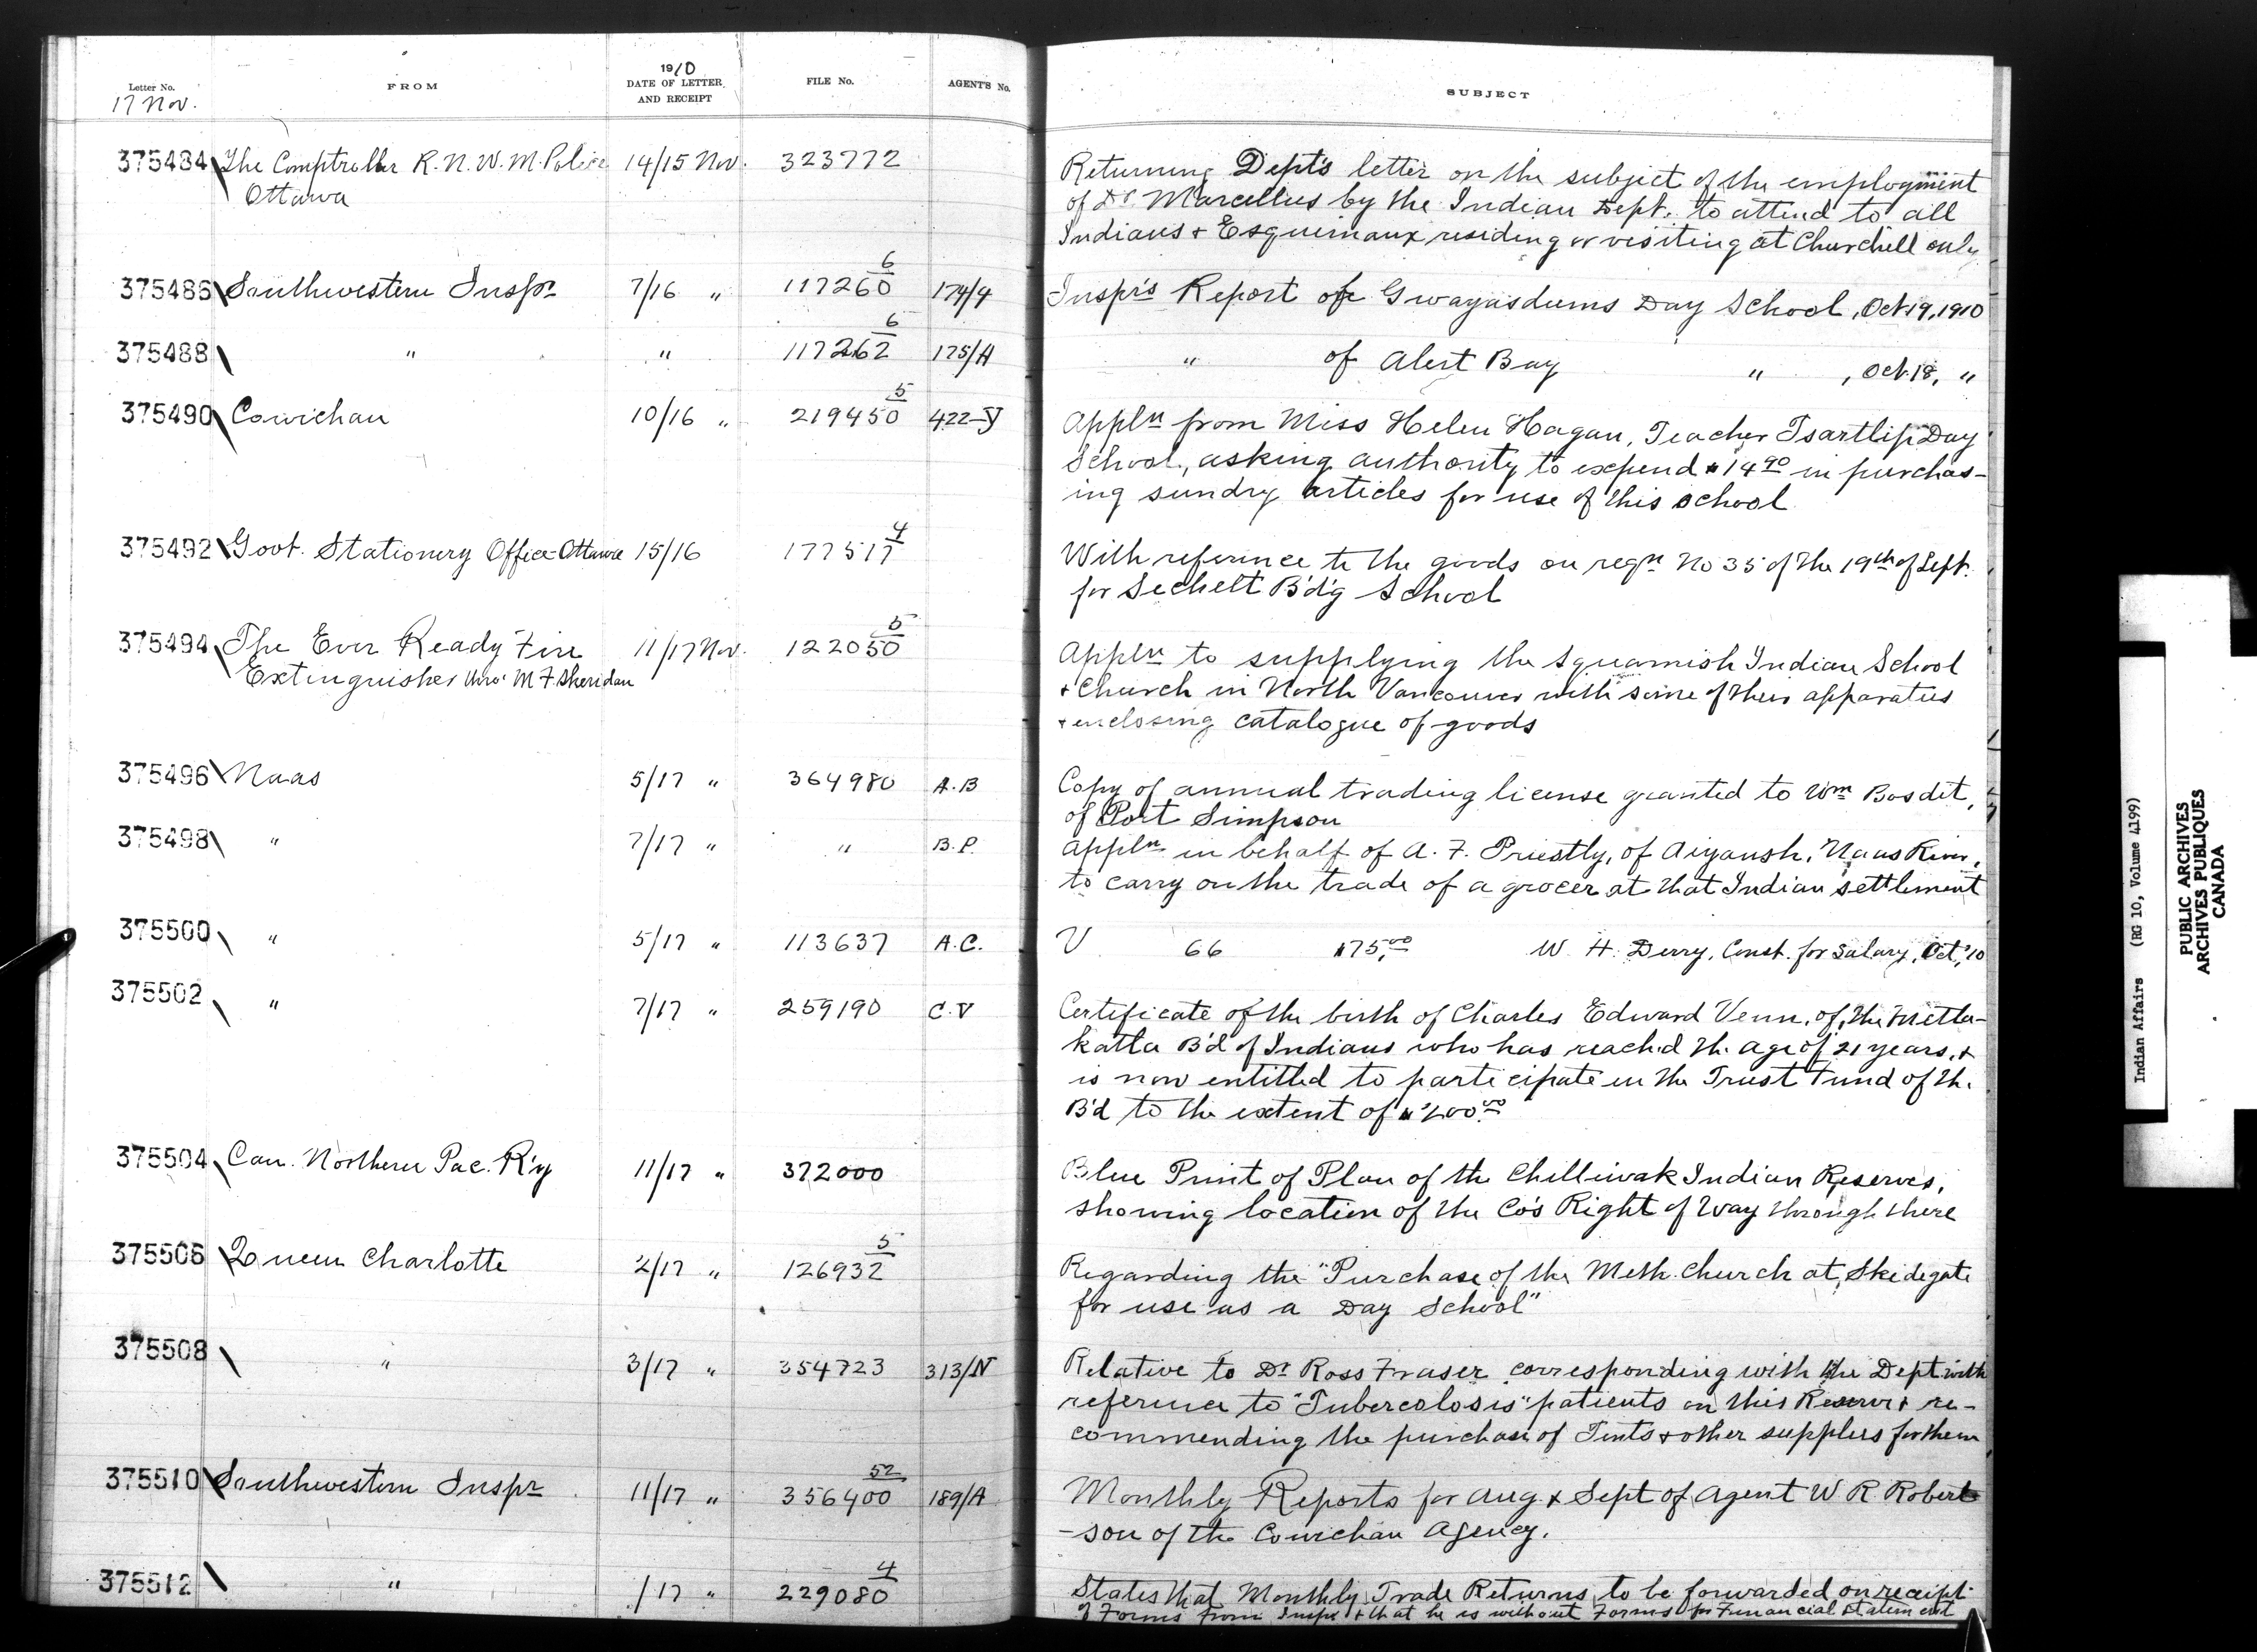 Letter No.
17 Nov.
FROM
1910
DATE OF LETTER
AND RECEIPT
FILE No.
AGENT'S No.
SUBJECT
375484 The Comptroller R. N. W. M. Police 14/15 Nov. 323772 Returning Dept's letter on the subject of the employment
Ottawa of Dr. Marcellus by the Indian Dept. to attend to all
Indians + Esquimaux residing or visiting at Churchill only
375486 Southwestern Inspr 7/16 " 117260 6 174/4 Inspr's Report of Gwayasdums Day School, Oct 19, 1910
375488 " " 117262 6 175/A " of Alert Bay " , Oct. 18, "
375490 Cowichan 10/16 " 219450 5 422-J Appln from Miss Helen Hagan, Teacher Tsartlip Day
School, asking authority to expend $14.90 in purchas-
ing sundry articles for use of this school
375492 Govt. Stationery Office Ottawa 15/16 177517 4 With reference to the goods on reqn No 35 of the 19th of Sept.
for Sechelt B'd'g School
375494 The Ever Ready Fire 11/17 Nov. 122050 5 Appln to supplying the Squamish Indian School
Extinguisher thro' M F Sheridan + Church in North Vancouver with some of their apparatus
+ enclosing catalogue of goods
375496 Naas 5/17 " 364980 A.B Copy of annual trading license granted to Wm Bosdet,
of Port Simpson
375498 " 7/17 " " B.P. Appln in behalf of A. F. Priestly, of Aiyansh, Naas River,
to carry on the trade of a grocer at that Indian settlement
375500 " 5/17 " 113637 A.C. V 66 $75.00 W. H. Derry, Const. for Salary, Oct, '10
375502 " 7/17 " 259190 C.V Certificate of the birth of Charles Edward Venn, of the Metla-
katla B'd of Indians who has reached the age of 21 years, +
is now entitled to participate in the Trust Fund of the
B'd to the extent of $200.00
375504 Can. Northern Pac. R'y 11/17 " 372000 Blue Print of Plan of the Chilliwak Indian Reserves,
showing location of the Co's Right of Way through there
375506 Queen Charlotte 2/17 " 126932 5 Regarding the "Purchase of the Meth. Church at Skidegate
for use as a Day School"
375508 " 3/17 " 354723 313/N Relative to Dr Ross Fraser corresponding with the Dept with
reference to "Tubercolosis" patients on this Reserve + re-
commending the purchase of Tents + other supplies for them
375510 Southwestern Inspr 11/17 " 356400 52 189/A Monthly Reports for Aug. & Sept of Agent W. R. Robert
-son of the Cowichan Agency.
375512 " /17 " 229080 4 States that Monthly Trade Returns to be forwarded on receipt
of Forms from Inspr + that he is without Forms for Financial Statement
Indian Affairs (RG 10, Volume 4199)
PUBLIC ARCHIVES
ARCHIVES PUBLIQUES
CANADA